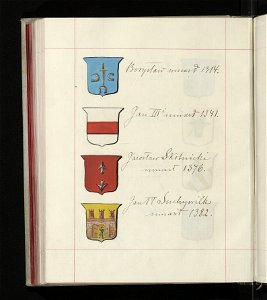 Borysław umarł 1314.
Jan III umarł 1341.
Jarosław Skotnicki
umarł 1376.
Jan IV Suchywilk
umarł 1382.